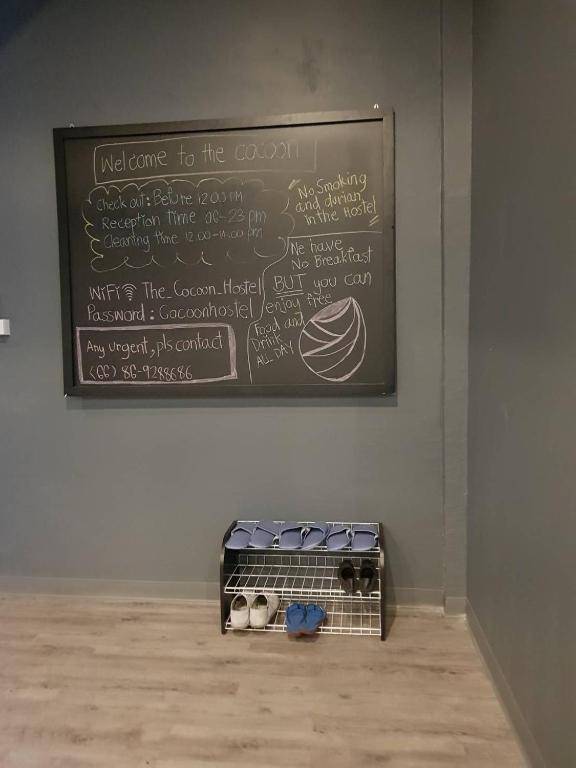 Welcome to the cocoon
Check out : Before 12.00 PM
Reception time 08-23 pm
Cleaning time 12.00-14.00 pm
No Smoking
and durian
in the Hostel
We have
No Breakfast
BUT you can
enjoy free
Food and
Drink
ALL DAY
WiFi The_Cocoon_Hostel
Password : Cocoonhostel
Any urgent, pls contact
(66) 86-9288686